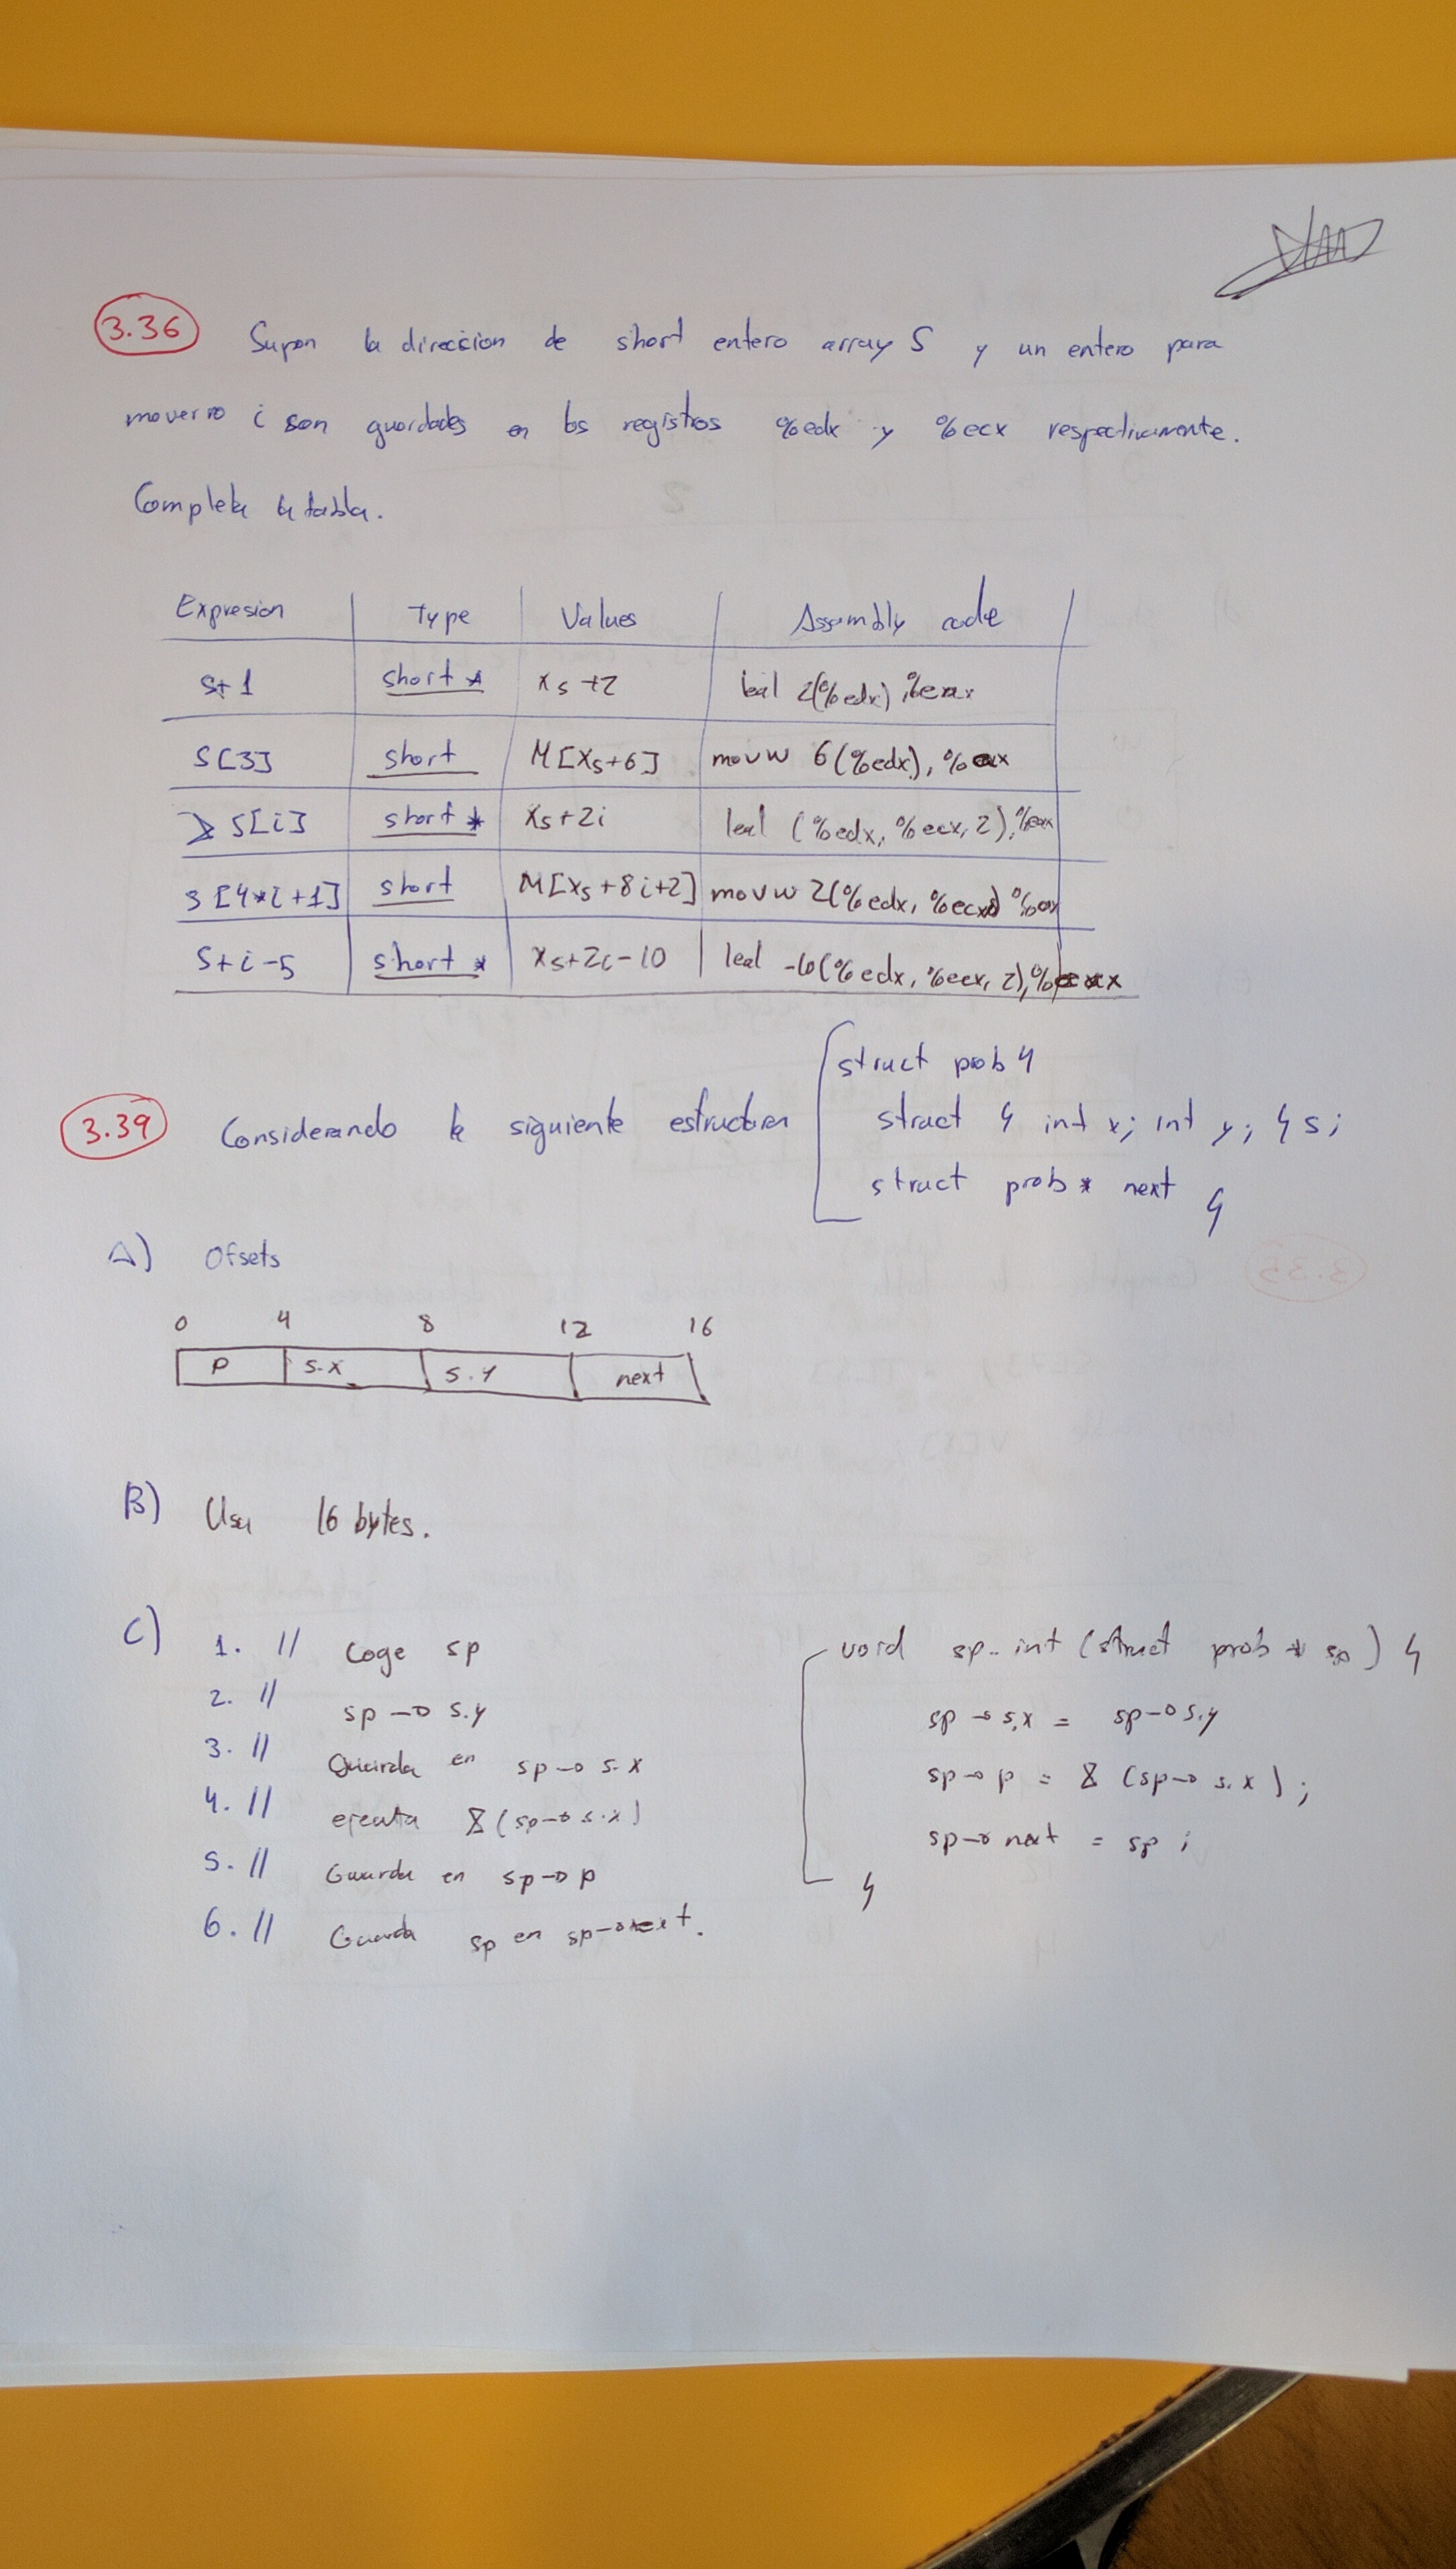 3.36 Supon la direccion de short entero array S y un entero para
moverno i son guardades en los registros %edx y %ecx respectivamente.
Completa la tabla.
Expresion Type Values Assembly code
S+1 short * xs+2 leal 2(%edx), %eax
S[3] short M[Xs+6] movw 6(%edx), %ax
& S[i] short * Xs+2i leal (%edx, %ecx, 2), %eax
S[4*i+1] short M[Xs+8i+2] movw 2(%edx, %ecx, 8) %ax
S+i-5 short * Xs+2i-10 leal -10(%edx, %ecx, 2), %eax
struct prob {
3.39 Considerando la siguiente estructura struct { int x; int y; } s;
struct prob * next }
A) Ofsets
0 4 8 12 16
P s.x s.y next
B) Usa 16 bytes.
C) 1. // Coge sp
2. // sp → s.y
3. // Guarda en sp → s.x
4. // ejecuta & (sp → s.x)
5. // Guarda en sp → p
6. // Guarda sp en sp → next.
void sp_int (struct prob * sp) {
sp → s.x = sp → s.y
sp → p = & (sp → s.x);
sp → next = sp;
}